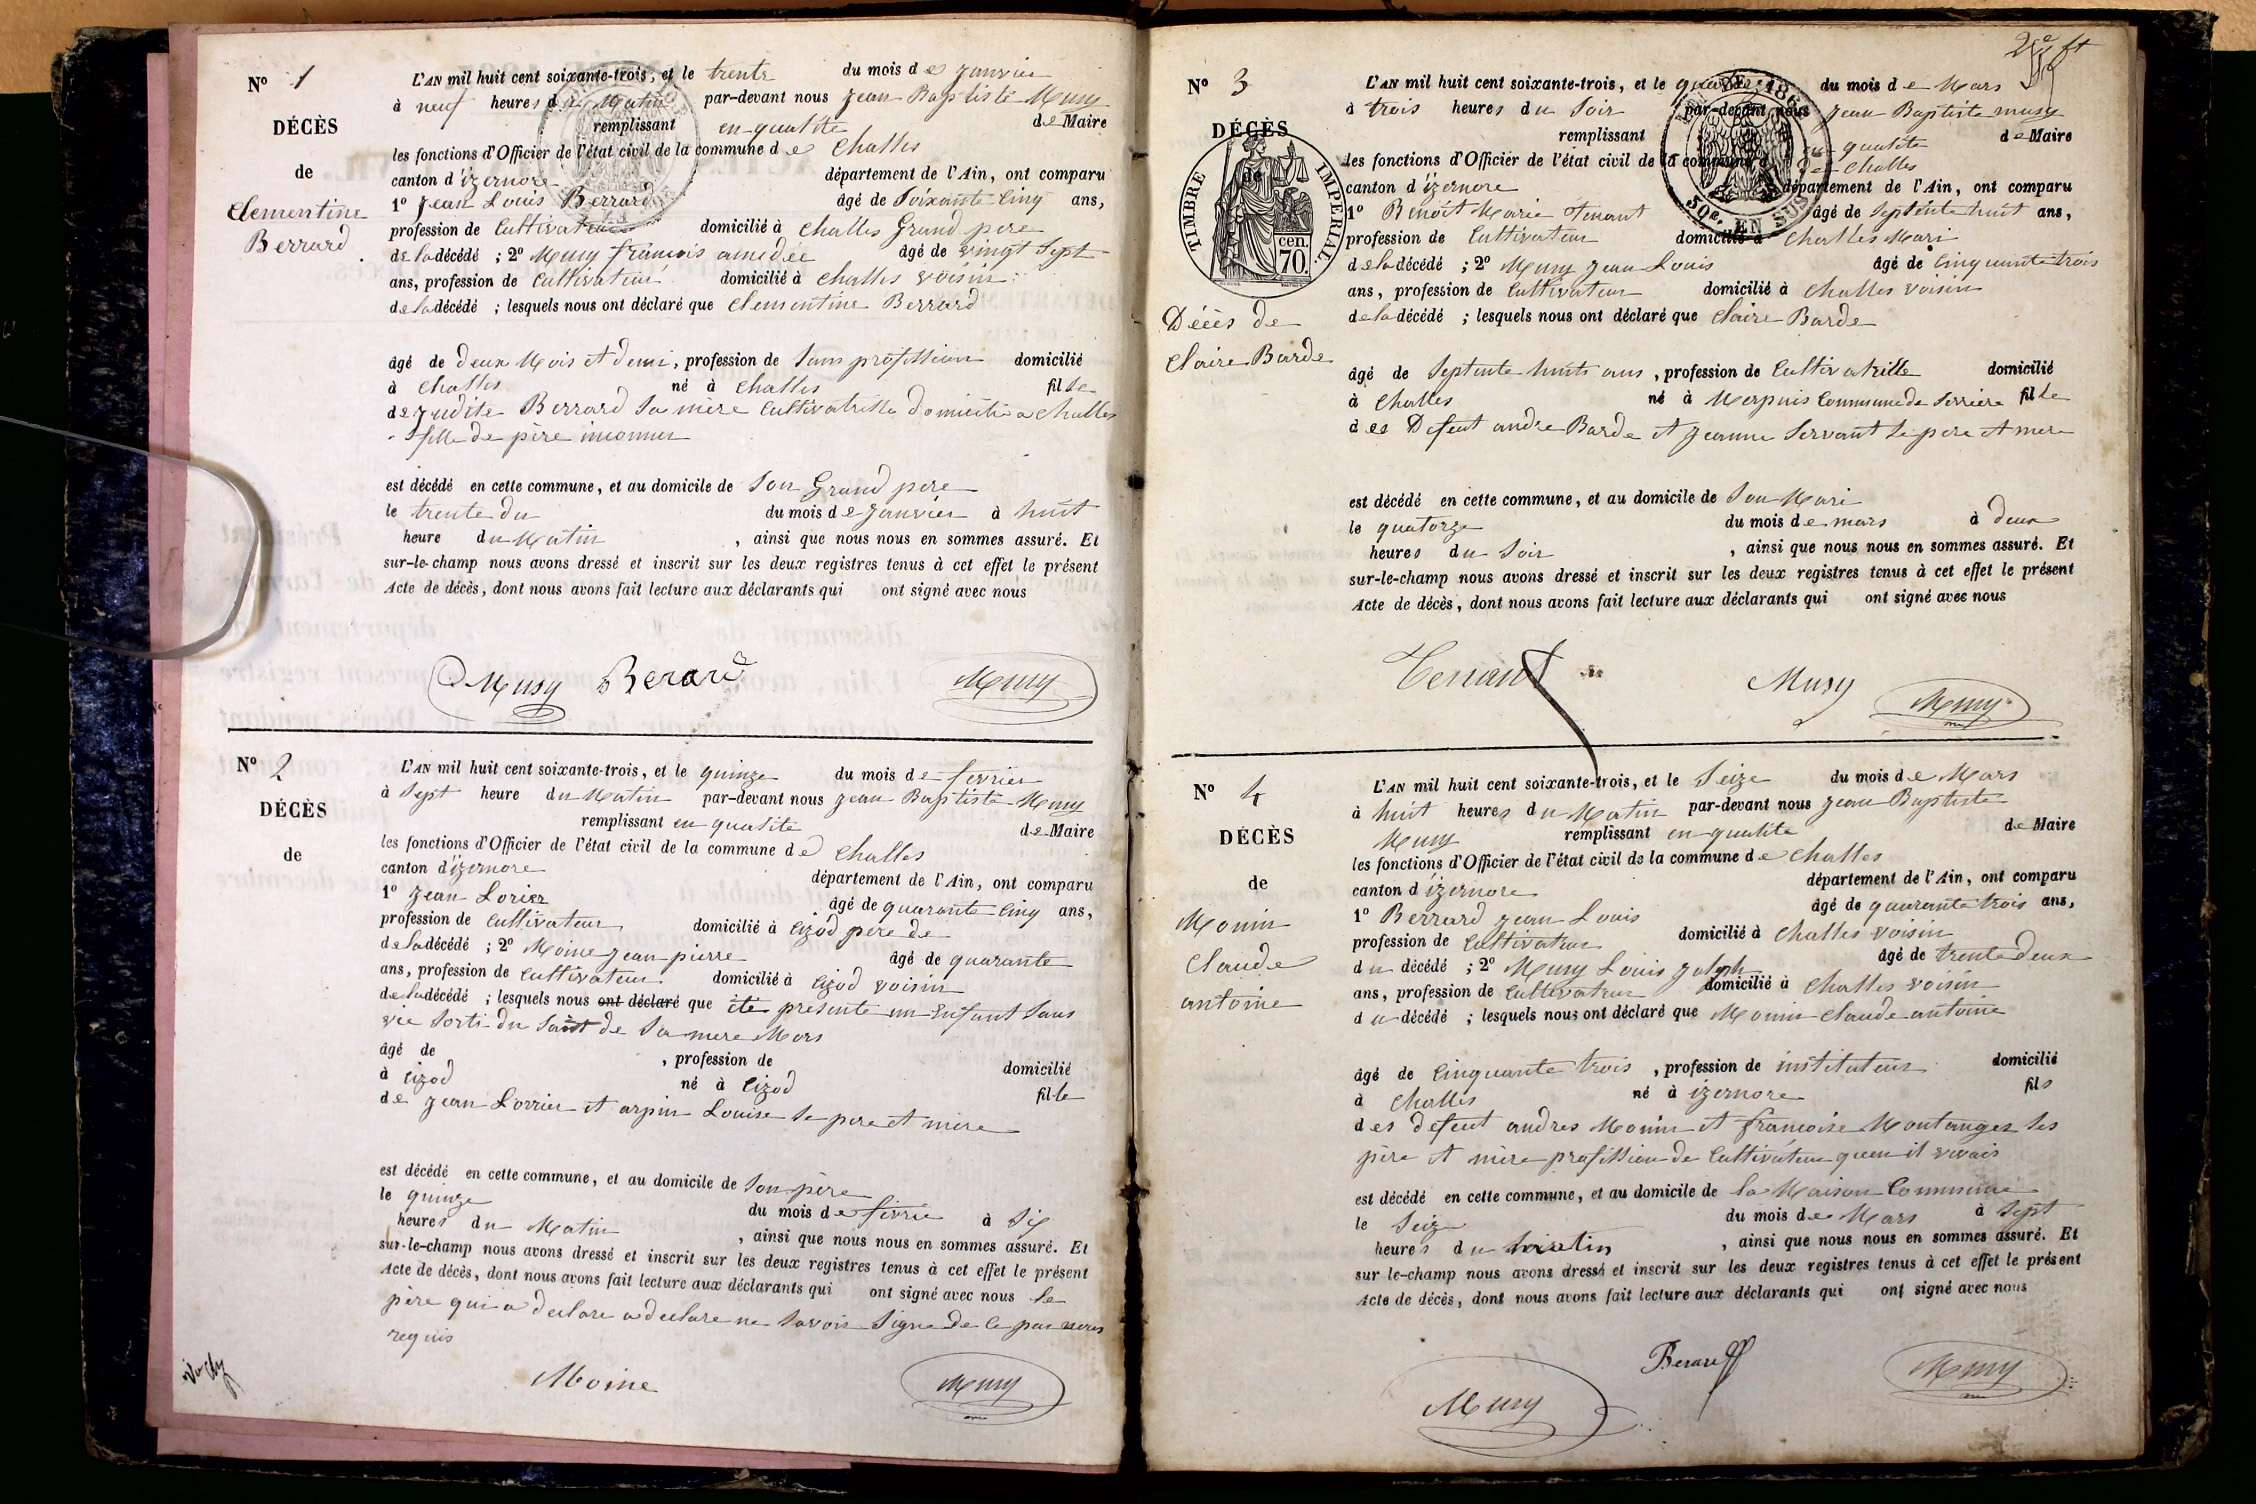 N° 1
DÉCÈS
de
Clementine
Berrard
L'AN mil huit cent soixante-trois, et le trente du mois de Janvier
à neuf heures du Matin par-devant nous Jean Baptiste Musy
remplissant en qualité de Maire
les fonctions d'Officier de l'état civil de la commune de Challes
canton d'izernore département de l'Ain, ont comparu
1° Jean Louis Berrard âgé de Soixante Cinq ans,
profession de Cultivateur domicilié à Challes Grand pere
de la décédé ; 2° Musy françois amedée âgé de vingt Sept
ans, profession de Cultivateur domicilié à Challes voisin
de la décédé ; lesquels nous ont déclaré que Clementine Berrard
âgé de deux Mois et demi, profession de Sans profession domicilié
à Challes né à Challes fille
de Judite Berrard Sa mère Cultivatrisse domicilié a Challes
fille de père inconnus
est décédé en cette commune, et au domicile de Son Grand pere
le trente du du mois de Janvier à huit
heure du Matin , ainsi que nous nous en sommes assuré. Et
sur-le-champ nous avons dressé et inscrit sur les deux registres tenus à cet effet le présent
Acte de décès, dont nous avons fait lecture aux déclarants qui ont signé avec nous
Musy Berard Musy
N° 2
DÉCÈS
de
L'AN mil huit cent soixante-trois, et le quinze du mois de fevrier
à Sept heure du Matin par-devant nous Jean Baptiste Musy
remplissant en qualité de Maire
les fonctions d'Officier de l'état civil de la commune de Challes
canton d'izernore département de l'Ain, ont comparu
1° Jean Lorier âgé de quarante Cinq ans,
profession de Cultivateur domicilié à Cizod père de
de la décédé ; 2° Moine Jean pierre âgé de quarante
ans, profession de Cultivateur domicilié à Cizod voisin
de la décédé ; lesquels nous ont déclaré que été présenté un Enfant Sans
vie Sorti du de Sa mere Mors
âgé de , profession de domicilié
à Cizod né à Cizod fille
de Jean Lorrier et arpin Louise Se pere et mère
est décédé en cette commune, et au domicile de Son père
le quinze du mois de fevrie à Six
heures du Matin , ainsi que nous nous en sommes assuré. Et
sur-le-champ nous avons dressé et inscrit sur les deux registres tenus à cet effet le présent
Acte de décès, dont nous avons fait lecture aux déclarants qui ont signé avec nous le
père qui a declare a declare ne Savoir Signe de Ce par nous
requis
Moine Musy
N° 3
DÉCÈS
de
TIMBRE IMPERIAL
cen.
70.
50e. EN SUS
Décès de
Claire Barde
L'AN mil huit cent soixante-trois, et le du mois de Mars
à trois heures du Soir par-devant nous Jean Baptiste musy
remplissant en qualité de Maire
les fonctions d'Officier de l'état civil de la commune de Challes
canton d'izernore département de l'Ain, ont comparu
1° Benoit Marie Tenant âgé de Septente huit ans,
profession de Cultivateur domicilié à Challes Mari
de la décédé ; 2° Musy Jean Louis âgé de Cinquante trois
ans, profession de Cultivateur domicilié à Challes voisin
de la décédé ; lesquels nous ont déclaré que Claire Barde
âgé de Septente huits ans , profession de Cultivatrisse domicilié
à Challes né à Merpuis Commune de Serriere fille
des Defeut andre Barde et Jeanne Servant Se pere et mere
est décédé en cette commune, et au domicile de Son Mari
le quatorze du mois de mars à deux
heures du Soir , ainsi que nous nous en sommes assuré. Et
sur-le-champ nous avons dressé et inscrit sur les deux registres tenus à cet effet le présent
Acte de décès, dont nous avons fait lecture aux déclarants qui ont signé avec nous
Tenant Musy Musy
N° 4
DÉCÈS
de
Monin
Claude
antoine
L'AN mil huit cent soixante-trois, et le Seize du mois de Mars
à huit heures du Matin par-devant nous Jean Baptiste
Musy remplissant en qualité de Maire
les fonctions d'Officier de l'état civil de la commune de Challes
canton d'izernore département de l'Ain, ont comparu
1° Berrard Jean Louis âgé de quarante trois ans,
profession de Cultivateur domicilié à Challes voisin
du décédé ; 2° Musy Louis Joseph âgé de trente deux
ans, profession de Cultivateur domicilié à Challes voisin
du décédé ; lesquels nous ont déclaré que Monin Claude antoine
âgé de Cinquante trois , profession de instituteur domicilié
à Challes né à izernore fils
des defeut andres Monin et françoise Montanges Ses
père et mère profession de Cultivateur quen il vivais
est décédé en cette commune, et au domicile de la Maison Commune
le Seize du mois de Mars à Sept
heures du matin , ainsi que nous nous en sommes assuré. Et
sur le-champ nous avons dressé et inscrit sur les deux registres tenus à cet effet le présent
Acte de décès, dont nous avons fait lecture aux déclarants qui ont signé avec nous
Berard
Musy Musy